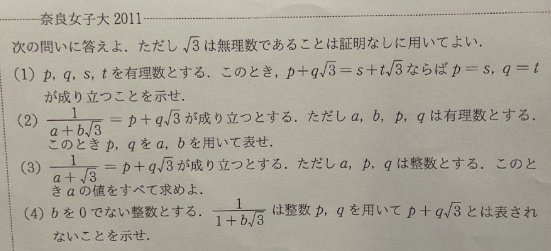 奈良女子大 2011
次の問いに答えよ．ただし √3 は無理数であることは証明なしに用いてよい．
(1) p, q, s, t を有理数とする．このとき，p+q√3＝s+t√3 ならば p＝s, q＝t
が成り立つことを示せ．
(2) 1/(a+b√3) ＝ p+q√3 が成り立つとする．ただし a, b, p, q は有理数とする．
このとき p, q を a, b を用いて表せ．
(3) 1/(a+√3) ＝ p+q√3 が成り立つとする．ただし a, p, q は整数とする．このと
き a の値をすべて求めよ．
(4) b を 0 でない整数とする．1/(1+b√3) は整数 p, q を用いて p+q√3 とは表され
ないことを示せ．